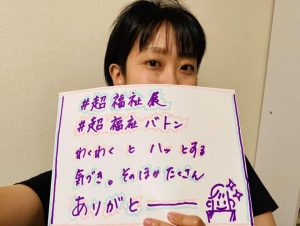 #超福祉展
#超福祉バトン
わくわく と ハッ とする
気づき。そのほか たくさん
ありがと――